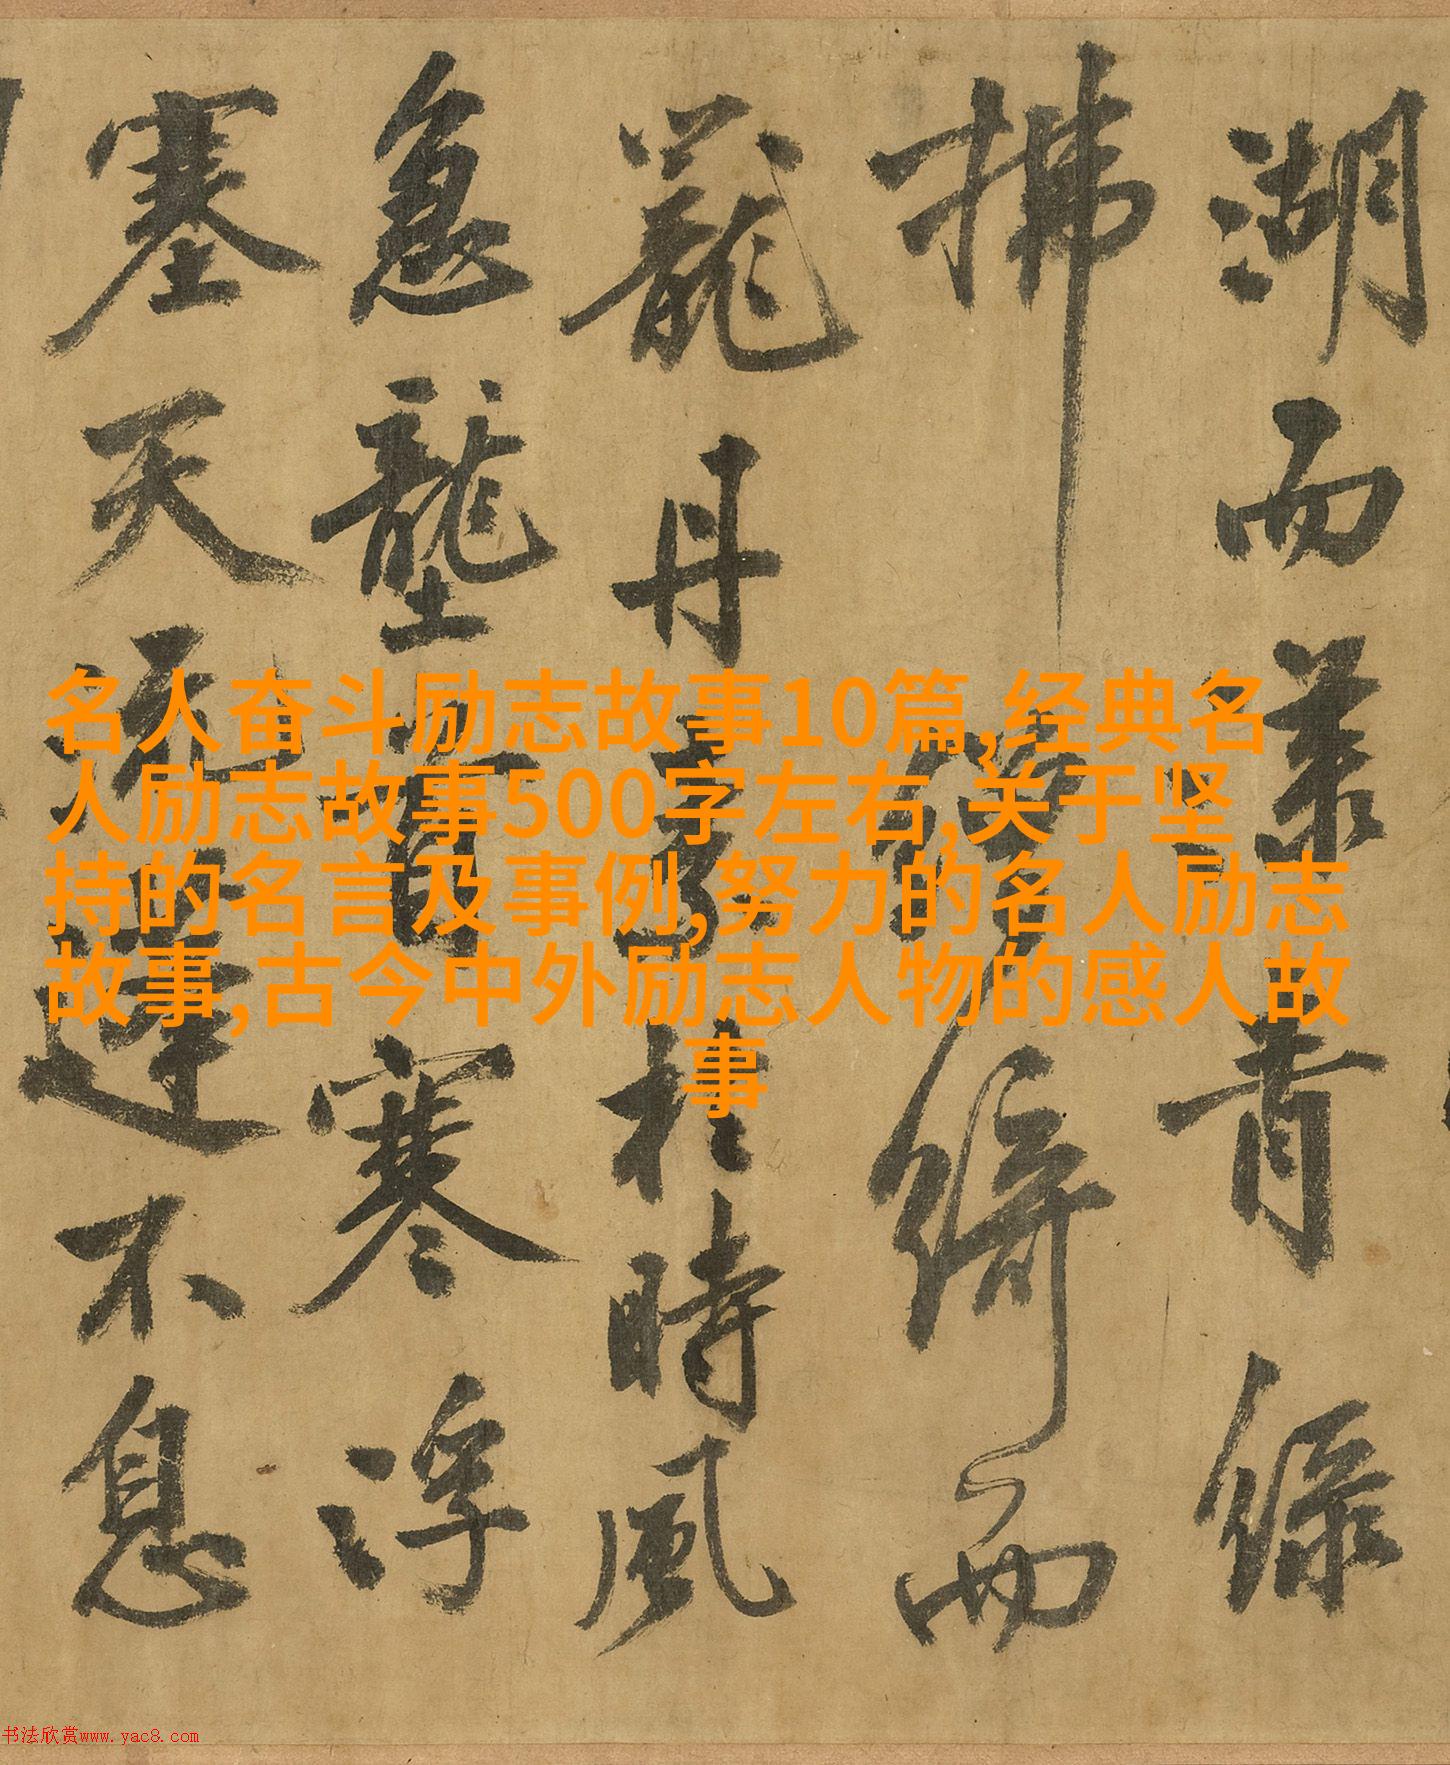 湖而青綠
拂綺而
籠丹桂時風
急壟首寒浮
塞天流連不息
名人奋斗励志故事10篇,经典名
人励志故事500字左右,关于坚
持的名言及事例,努力的名人励志
故事,古今中外励志人物的感人故
事
书法欣赏www.yac8.com